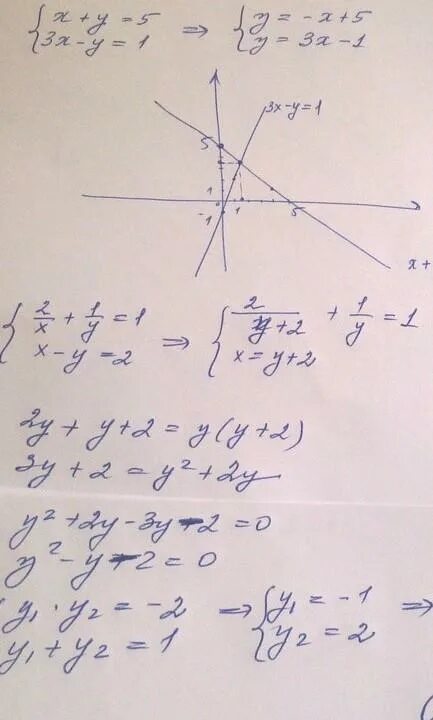 { x + y = 5 ⇒ { y = -x + 5
{ 3x - y = 1 { y = 3x - 1
3x - y = 1
5
1
-1 1 5
x +
{ 2/x + 1/y = 1 ⇒ { 2/(y+2) + 1/y = 1
{ x - y = 2 { x = y + 2
2y + y + 2 = y(y+2)
3y + 2 = y² + 2y
y² + 2y - 3y - 2 = 0
y² - y - 2 = 0
{ y₁ · y₂ = -2 ⇒ { y₁ = -1 ⇒
y₁ + y₂ = 1 { y₂ = 2